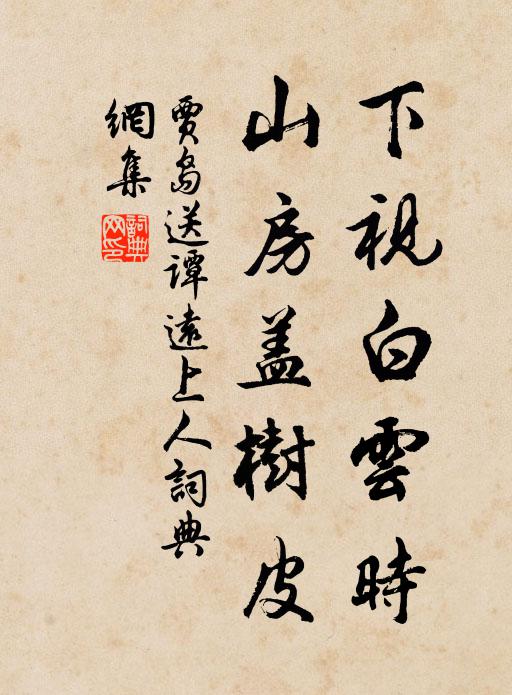 下視白雲時
山房盖樹皮
賈島送譚遠上人詞典
網集
詞典
网印